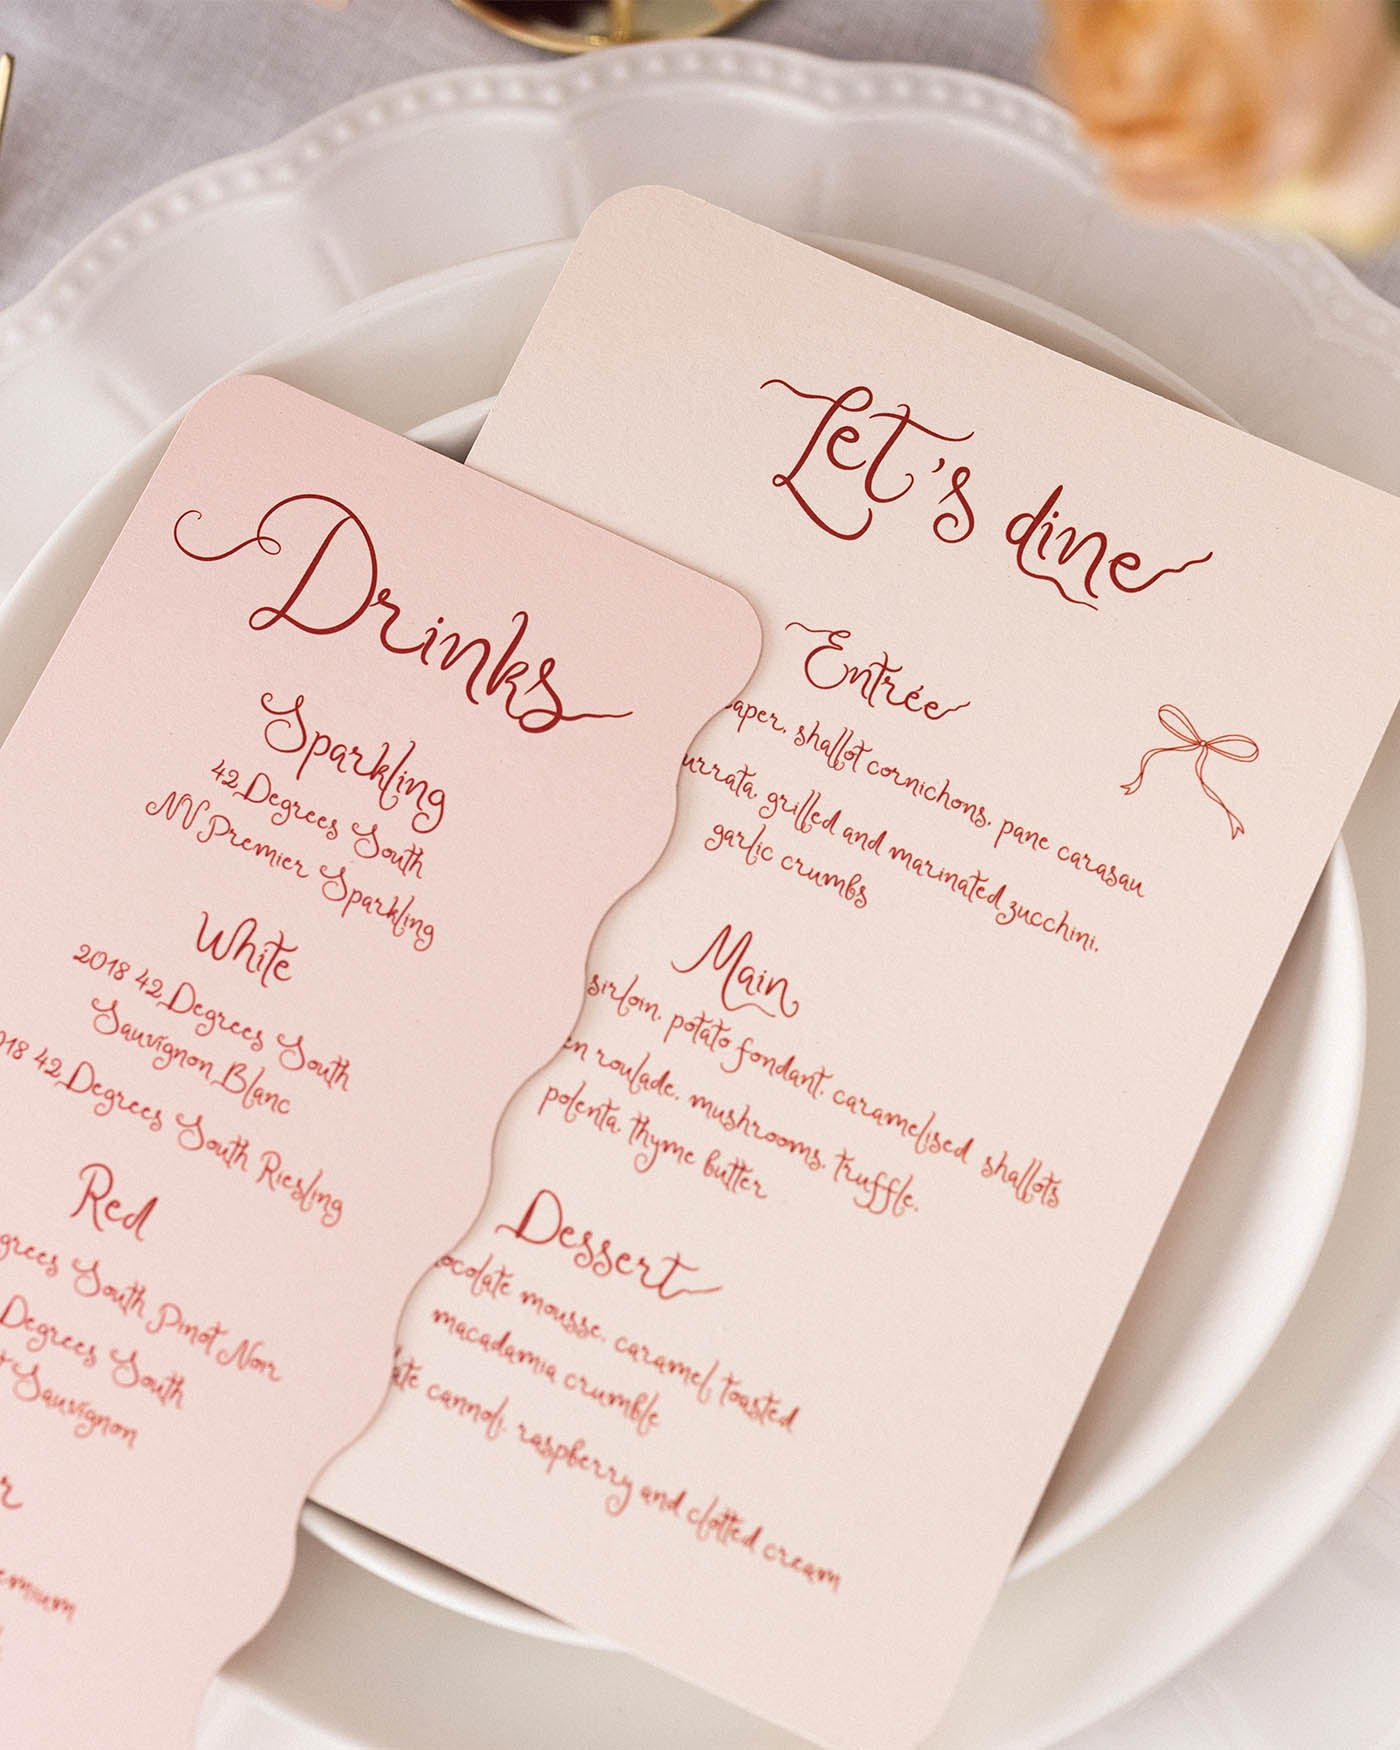 Drinks
Sparkling
42 Degrees South
NV Premier Sparkling
White
2018 42 Degrees South
Sauvignon Blanc
42 Degrees South Riesling
Red
South Pinot Noir
Degrees South
Sauvignon
Let's dine
Entrée
shallot cornichons, pane carasau
grilled and marinated zucchini,
garlic crumbs
Main
sirloin, potato fondant, caramelised shallots
roulade, mushrooms, truffle,
polenta, thyme butter
Dessert
mousse, caramel, toasted
macadamia crumble
cannoli, raspberry and clotted cream